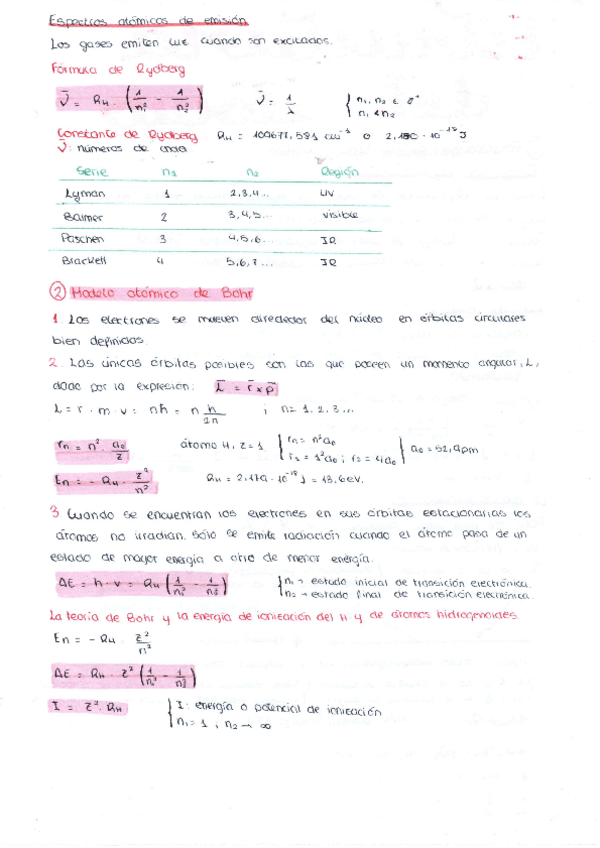 Espectros atómicos de emisión
Los gases emiten luz cuando son excitados.
Fórmula de Rydberg
ν̄ = R_H · (1/n₁² - 1/n₂²)   ν̄ = 1/λ   { n₁, n₂ ∈ ℤ⁺
n₁ < n₂
Constante de Rydberg R_H = 109677,581 cm⁻¹ o 2,180 · 10⁻¹⁸ J
ν̄: números de onda
Serie n₁ n₂ Región
Lyman 1 2,3,4... UV
Balmer 2 3,4,5... visible
Paschen 3 4,5,6... IR
Brackett 4 5,6,7... IR
② Modelo atómico de Bohr
1. Los electrones se mueven alrededor del núcleo en órbitas circulares
bien definidas.
2. Las únicas órbitas posibles son las que poseen un momento angular, L,
dado por la expresión: L̄ = r̄ x p̄
L = r · m · v = nħ = n h/2π ; n = 1, 2, 3...
rₙ = n² · a₀/Z   átomo H, Z = 1 { rₙ = n²a₀
r₁ = 1²a₀ ; r₂ = 4a₀ } a₀ = 52,9pm
Eₙ = - R_H · Z²/n²   R_H = 2,179 · 10⁻¹⁸ J = 13,6eV.
3 Cuando se encuentran los electrones en sus órbitas estacionarias los
átomos no irradian. Sólo se emite radiación cuando el átomo pasa de un
estado de mayor energía a otro de menor energía.
ΔE = h · ν = R_H (1/n₁² - 1/n₂²)   { n₁ → estado inicial de transición electrónica.
n₂ → estado final de transición electrónica.
La teoría de Bohr y la energía de ionización del H y de átomos hidrogenoides.
Eₙ = - R_H · Z²/n²
ΔE = R_H · Z² (1/n₁² - 1/n₂²)
I = Z² · R_H   { I: energía o potencial de ionización
n₁ = 1, n₂ → ∞